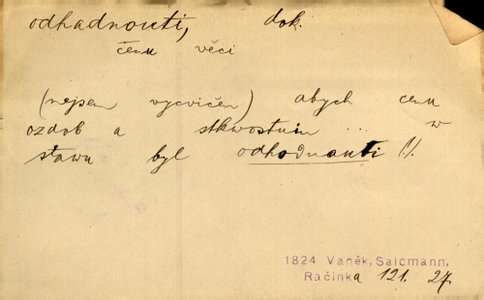 odhadnouti, dok.
cenu věci
(nejsem vycvičen) abych cenu
ozdob a skwostuim ... w
stawu byl odhodnauti (!).
1824 Vaněk, Salcmann,
Račinka 121. 27.